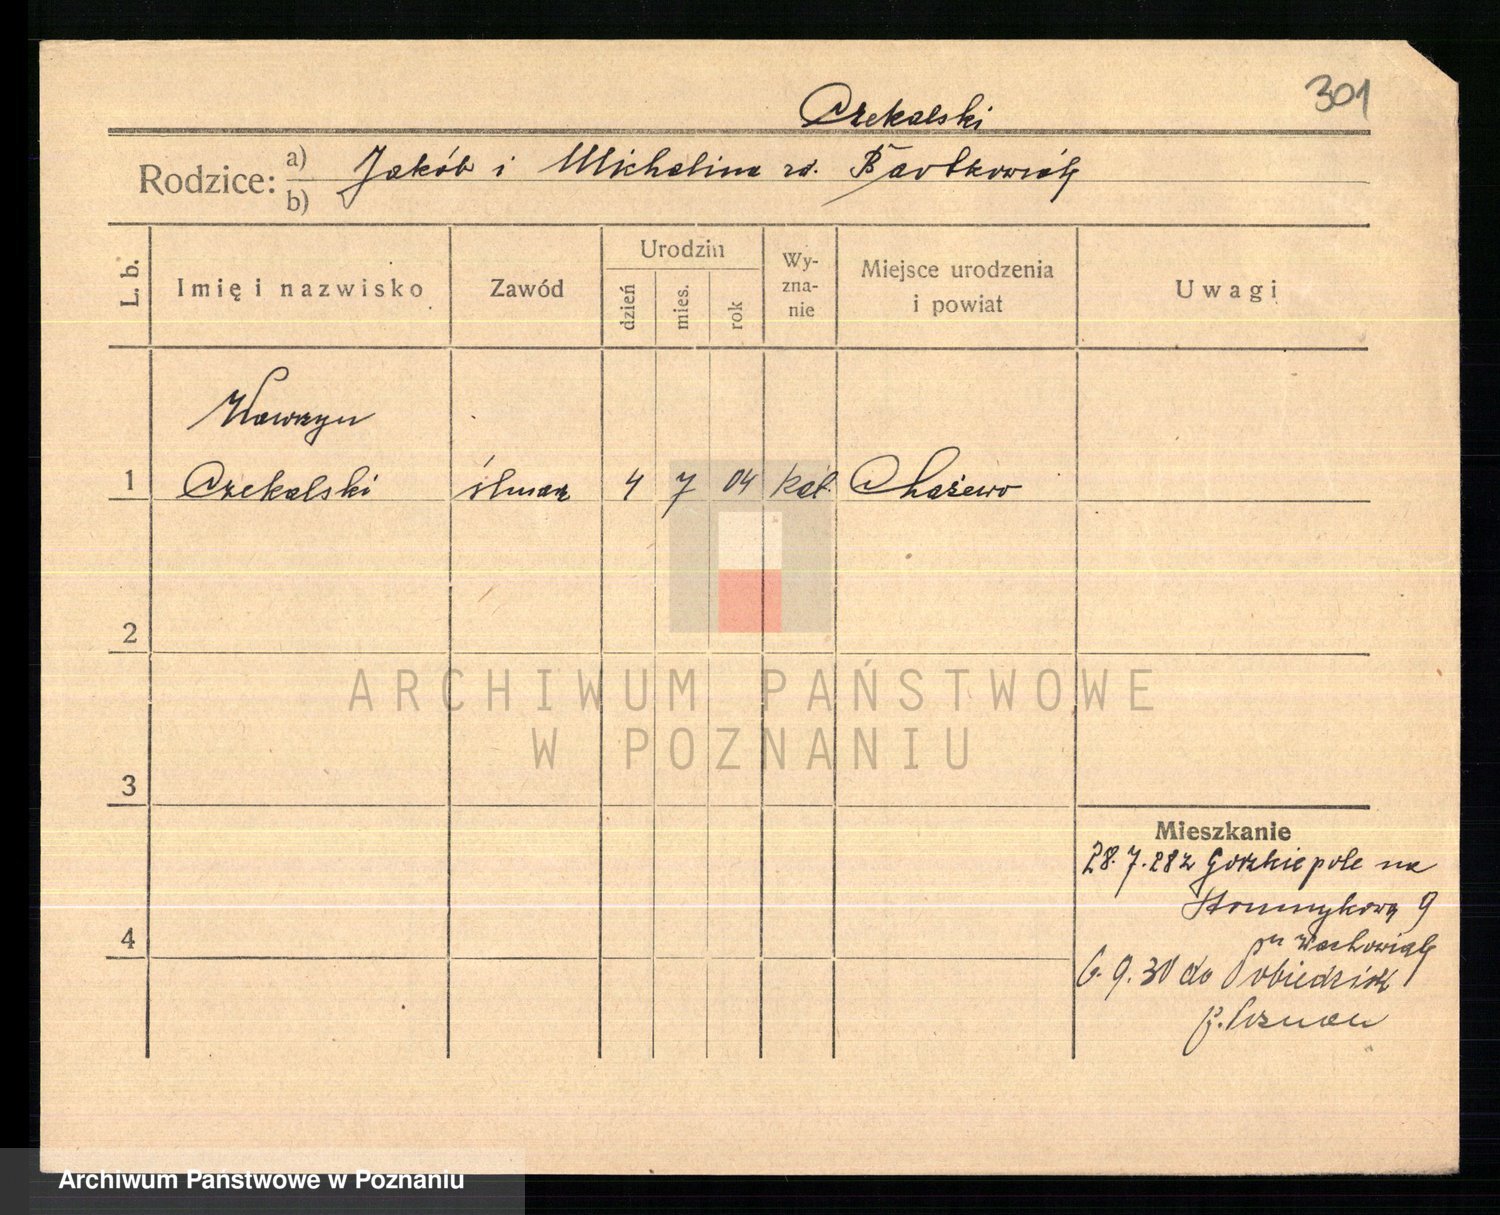 301
Czekalski
Rodzice: a) Jakób i Michalina zd. Bartkowiak
b)
L. b.
Imię i nazwisko
Zawód
Urodzin
dzień
mies.
rok
Wy-
zna-
nie
Miejsce urodzenia
i powiat
Uwagi
Wawrzyn
1 Czekalski ślusarz 4 7 04 kat. Chażewo
2
3
4
Mieszkanie
28.7.28 z Gorzkiepole na
9
Wachowiak
6.9.30 do Pobiedzisk
p. Poznań
ARCHIWUM PAŃSTWOWE
W POZNANIU
Archiwum Państwowe w Poznaniu